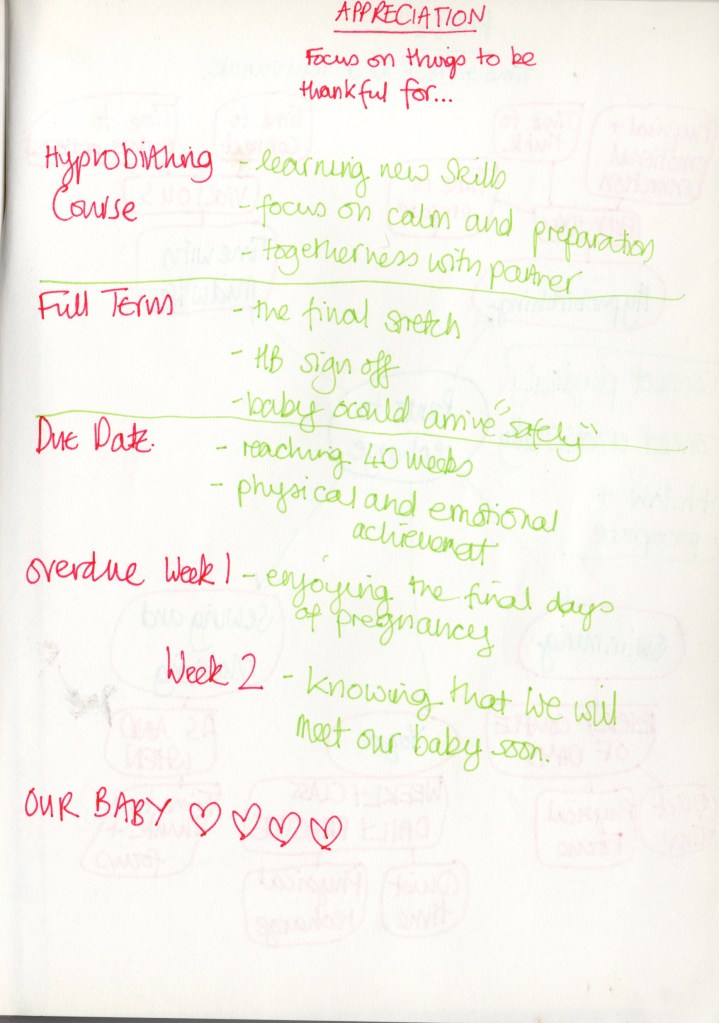 APPRECIATION
Focus on things to be
thankful for...
Hypnobirthing - learning new skills
Course - focus on calm and preparation
- togetherness with partner
Full Term - the final stretch
- HB sign off
- baby could arrive "safely"
Due Date. - reaching 40 weeks
- physical and emotional
achievement
overdue Week 1 - enjoying the final days
of pregnancy
Week 2 - knowing that we will
meet our baby soon.
OUR BABY ♡ ♡ ♡ ♡